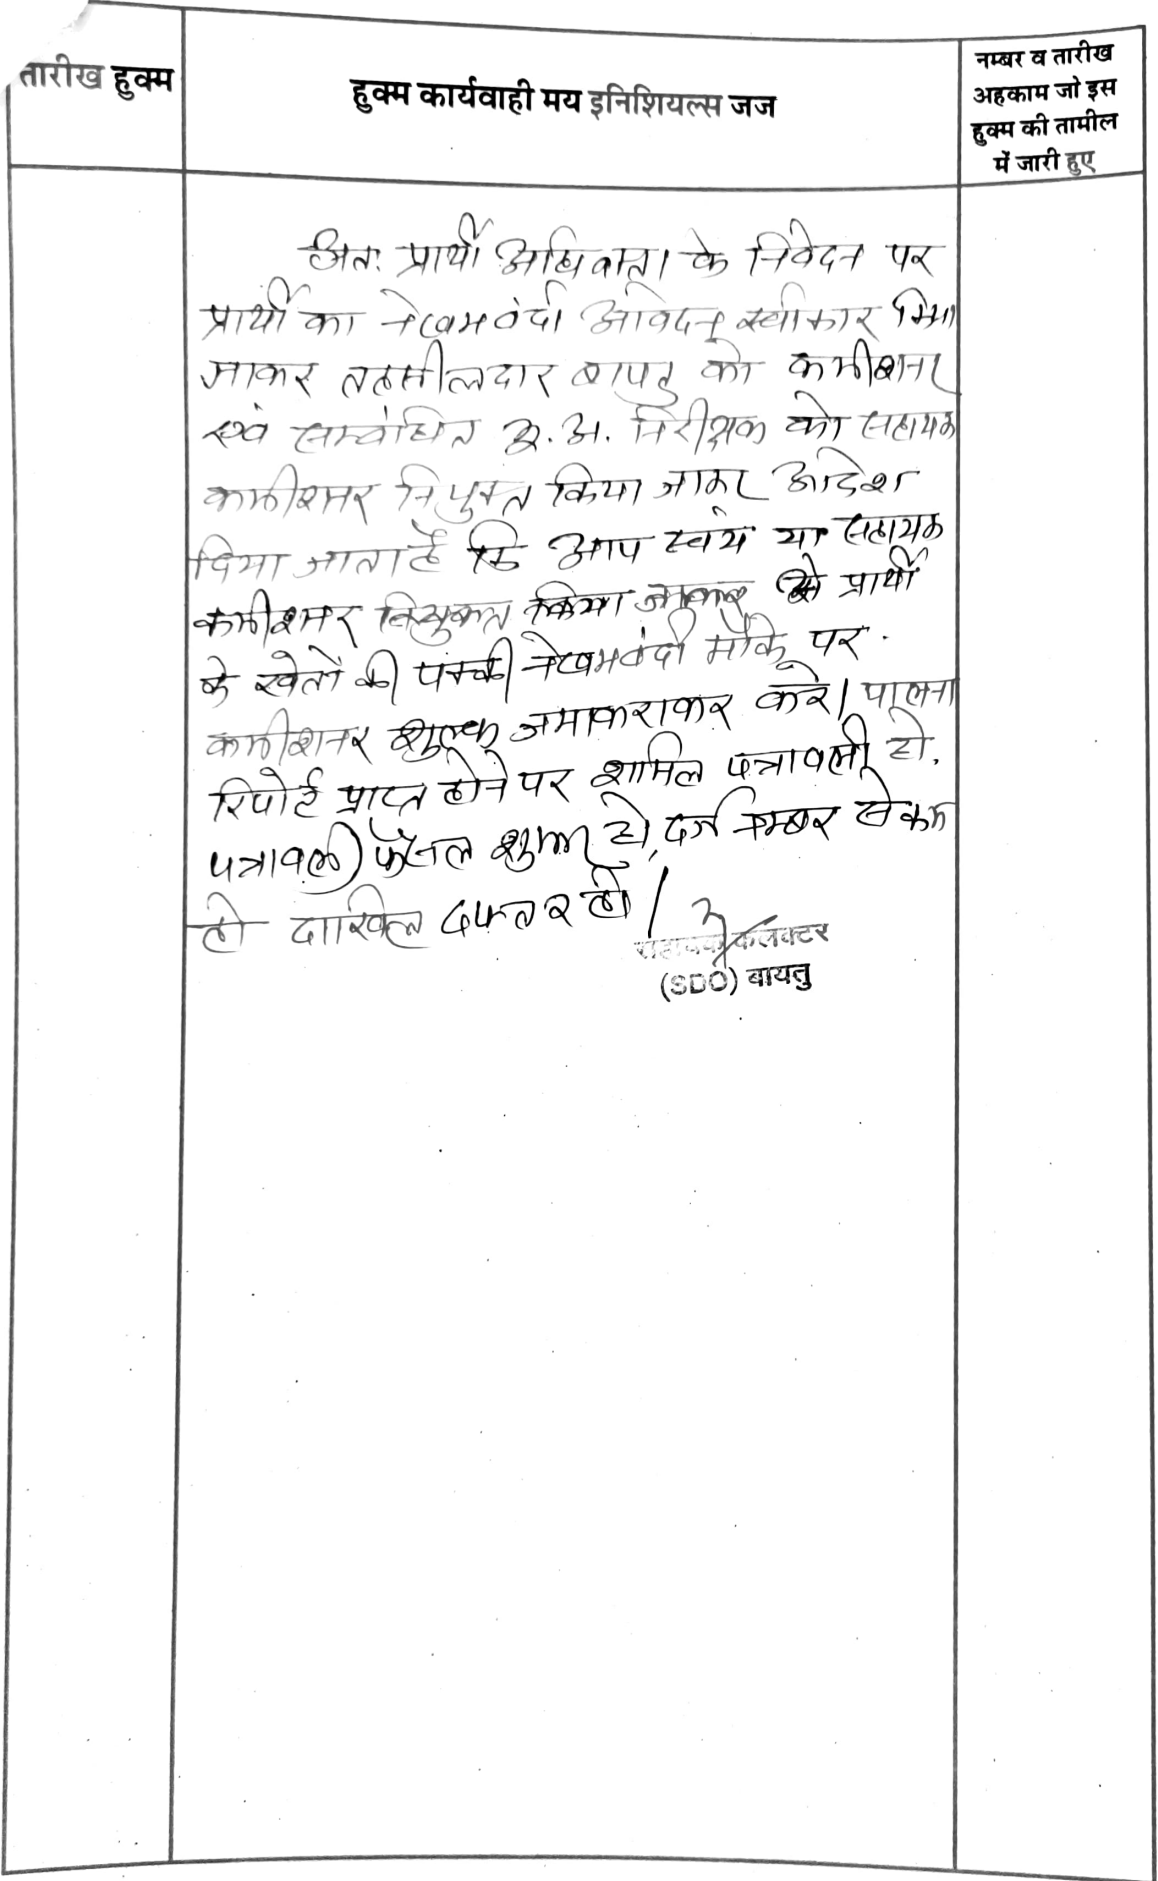 तारीख हुक्म
हुक्म कार्यवाही मय इनिशियल्स जज
नम्बर व तारीख
अहकाम जो इस
हुक्म की तामील
में जारी हुए
अतः प्रार्थी अधिवक्ता के निवेदन पर
प्रार्थी का नेखमबंदी आवेदन स्वीकार किया
जाकर तहसीलदार बायतु को कमीशनर
एवं सम्बंधित भू.अ. निरीक्षक को सहायक
कमीशनर नियुक्त किया जाकर आदेश
दिया जाता है कि आप स्वंय या सहायक
कमीशनर नियुक्त किया जाकर से प्रार्थी
के खेतों की पक्की नेखमबंदी मौके पर
कमीशनर शुल्क जमा कराकर करे। पालना
रिपोर्ट प्राप्त होने पर शामिल पत्रावली हो.
पत्रावली फैसल शुमार हो, दर्ज नम्बर से कम
हो दाखिल दफ्तर हो।
सहायक कलक्टर
(SDO) बायतु